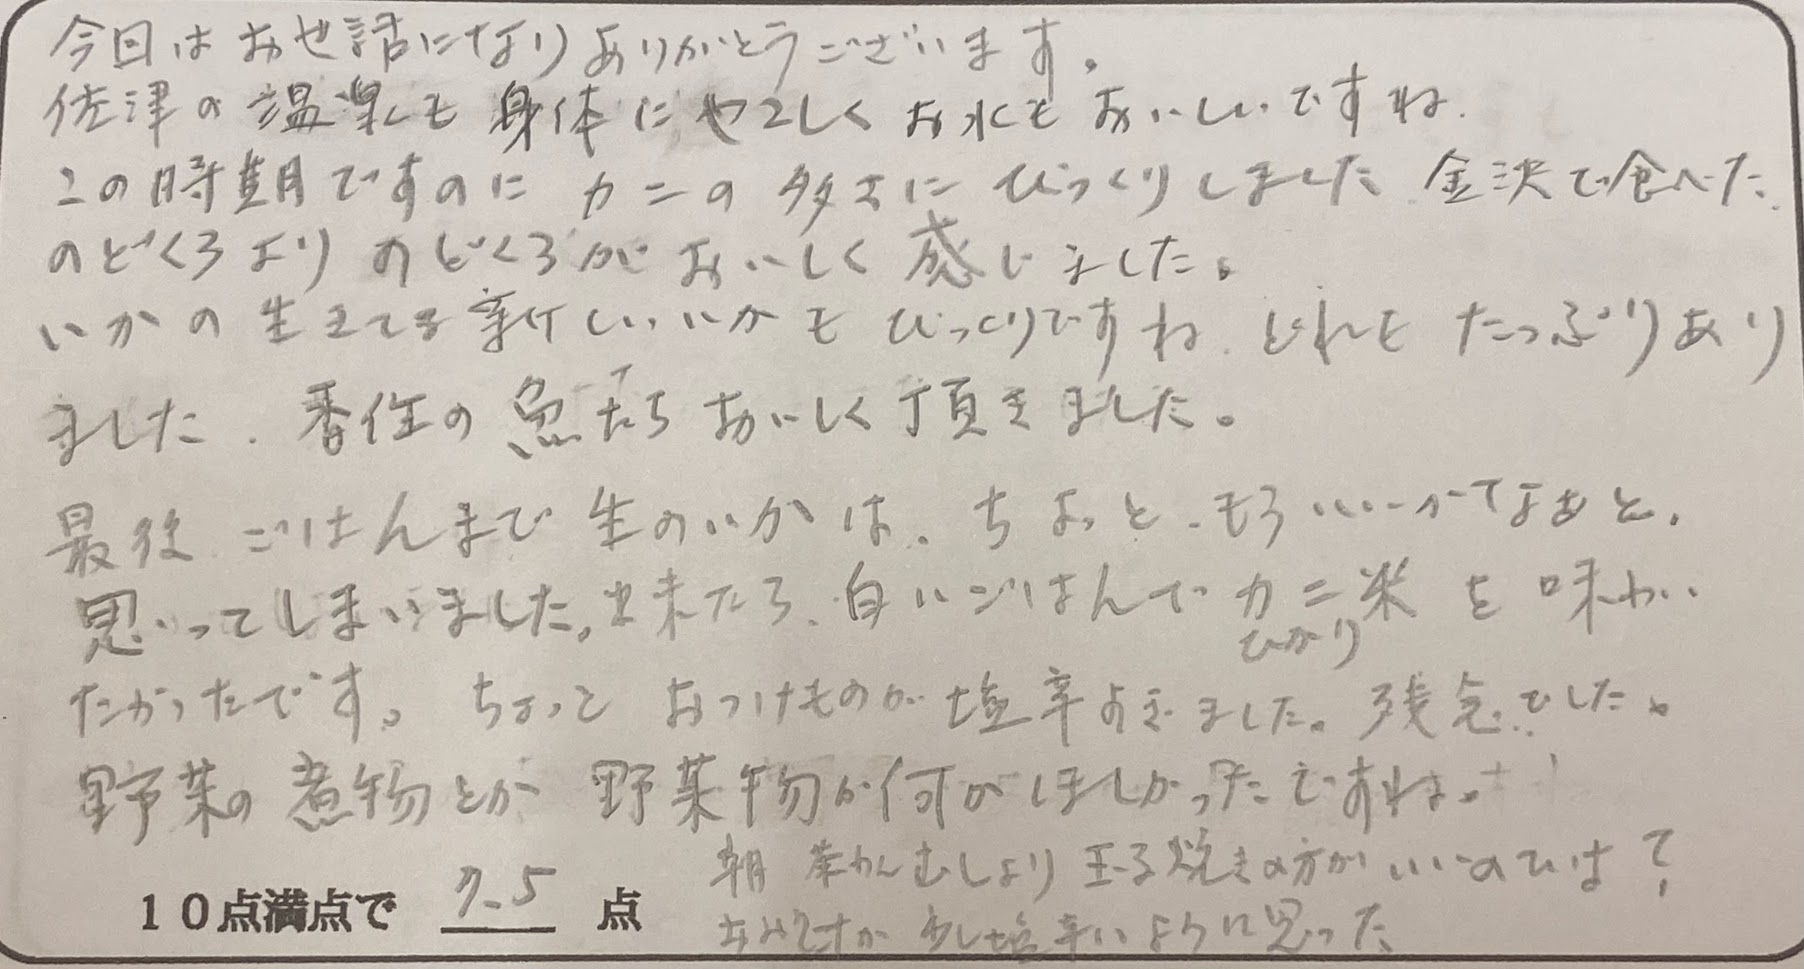 今日はお世話になりありがとうございます。
佐津の温泉も身体にやさしくお水もおいしいですね.
この時期ですのにカニの多さにびっくりしました.金沢で食べた.
のどくろよりのどくろがおいしく感じました。
いかの生きてる新しいいかもびっくりですね.どれもたっぷりあり
ました.香住の魚たちおいしく頂きました。
最後.ごはんまで生のいかは、ちょっと.もういいかなあと.
思ってしまいました,出来たら.白いごはんでカニ米を味わい
ひかり
たかったです。ちょっとおつけものが塩辛すぎました。残念でした。
野菜の煮物とか野菜物か何かほしかったですね。
10点満点で 7.5 点
朝 茶わんむしより玉子焼きの方がいいのでは?
おみそすか少し塩辛いように思った